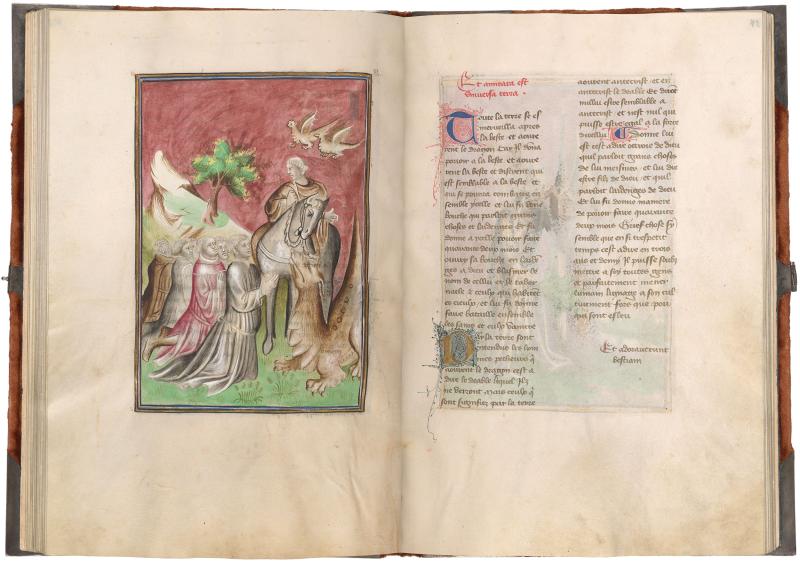 Et amirata est
universa terra.
Toute la terre se es
merveilla apres
la beste et aoure
rent le dragon Car Il dona
povoir a la beste et aoure
rent la beste et disrent qui
est semblable a la beste et
qui se pourra combatre en
semble ycelle et lui fu donne
bouche qui parloit grans
choses et laidenges et fu
donne a ycelle povoir faire
quarante deux mois Et
ouvry sa bouche en laide
ges a dieu et blasmer de
nom de cellui et le taber
nacle et ceulx qui habitent
es cieulx et lui fu donne
faire bataille ensemble
les sains et eulx vaincre
Par la terre sont
entendus les hom
mes pecheurs q
aourent le dragon cest a
dire le deable lequel Ilz
ne verront Mais ceulx q
sont signifiez par la terre
aourent antecrist et en
antecrist le deable Et dient
nullui estre semblable a
antecrist et nest nul qui
puisse estre egal a la force
dicellui Donne lui
est cest a dire octroie de dieu
quil parloit grans choses
de lui mesmes et lui dit
estre filz de dieu et quil
parloit laidenges de dieu
Et lui fu donne maniere
de povoir faire quarante
deux mois Grief chose
semble que en si trespetit
temps cest a dire en trois
ans et demy Il puisse soub
mettre a soy toutes gens
et parfaitement mener
lumain lignage a son cul
tivement fors que
qui sont esleu
Et adoraverunt
bestiam